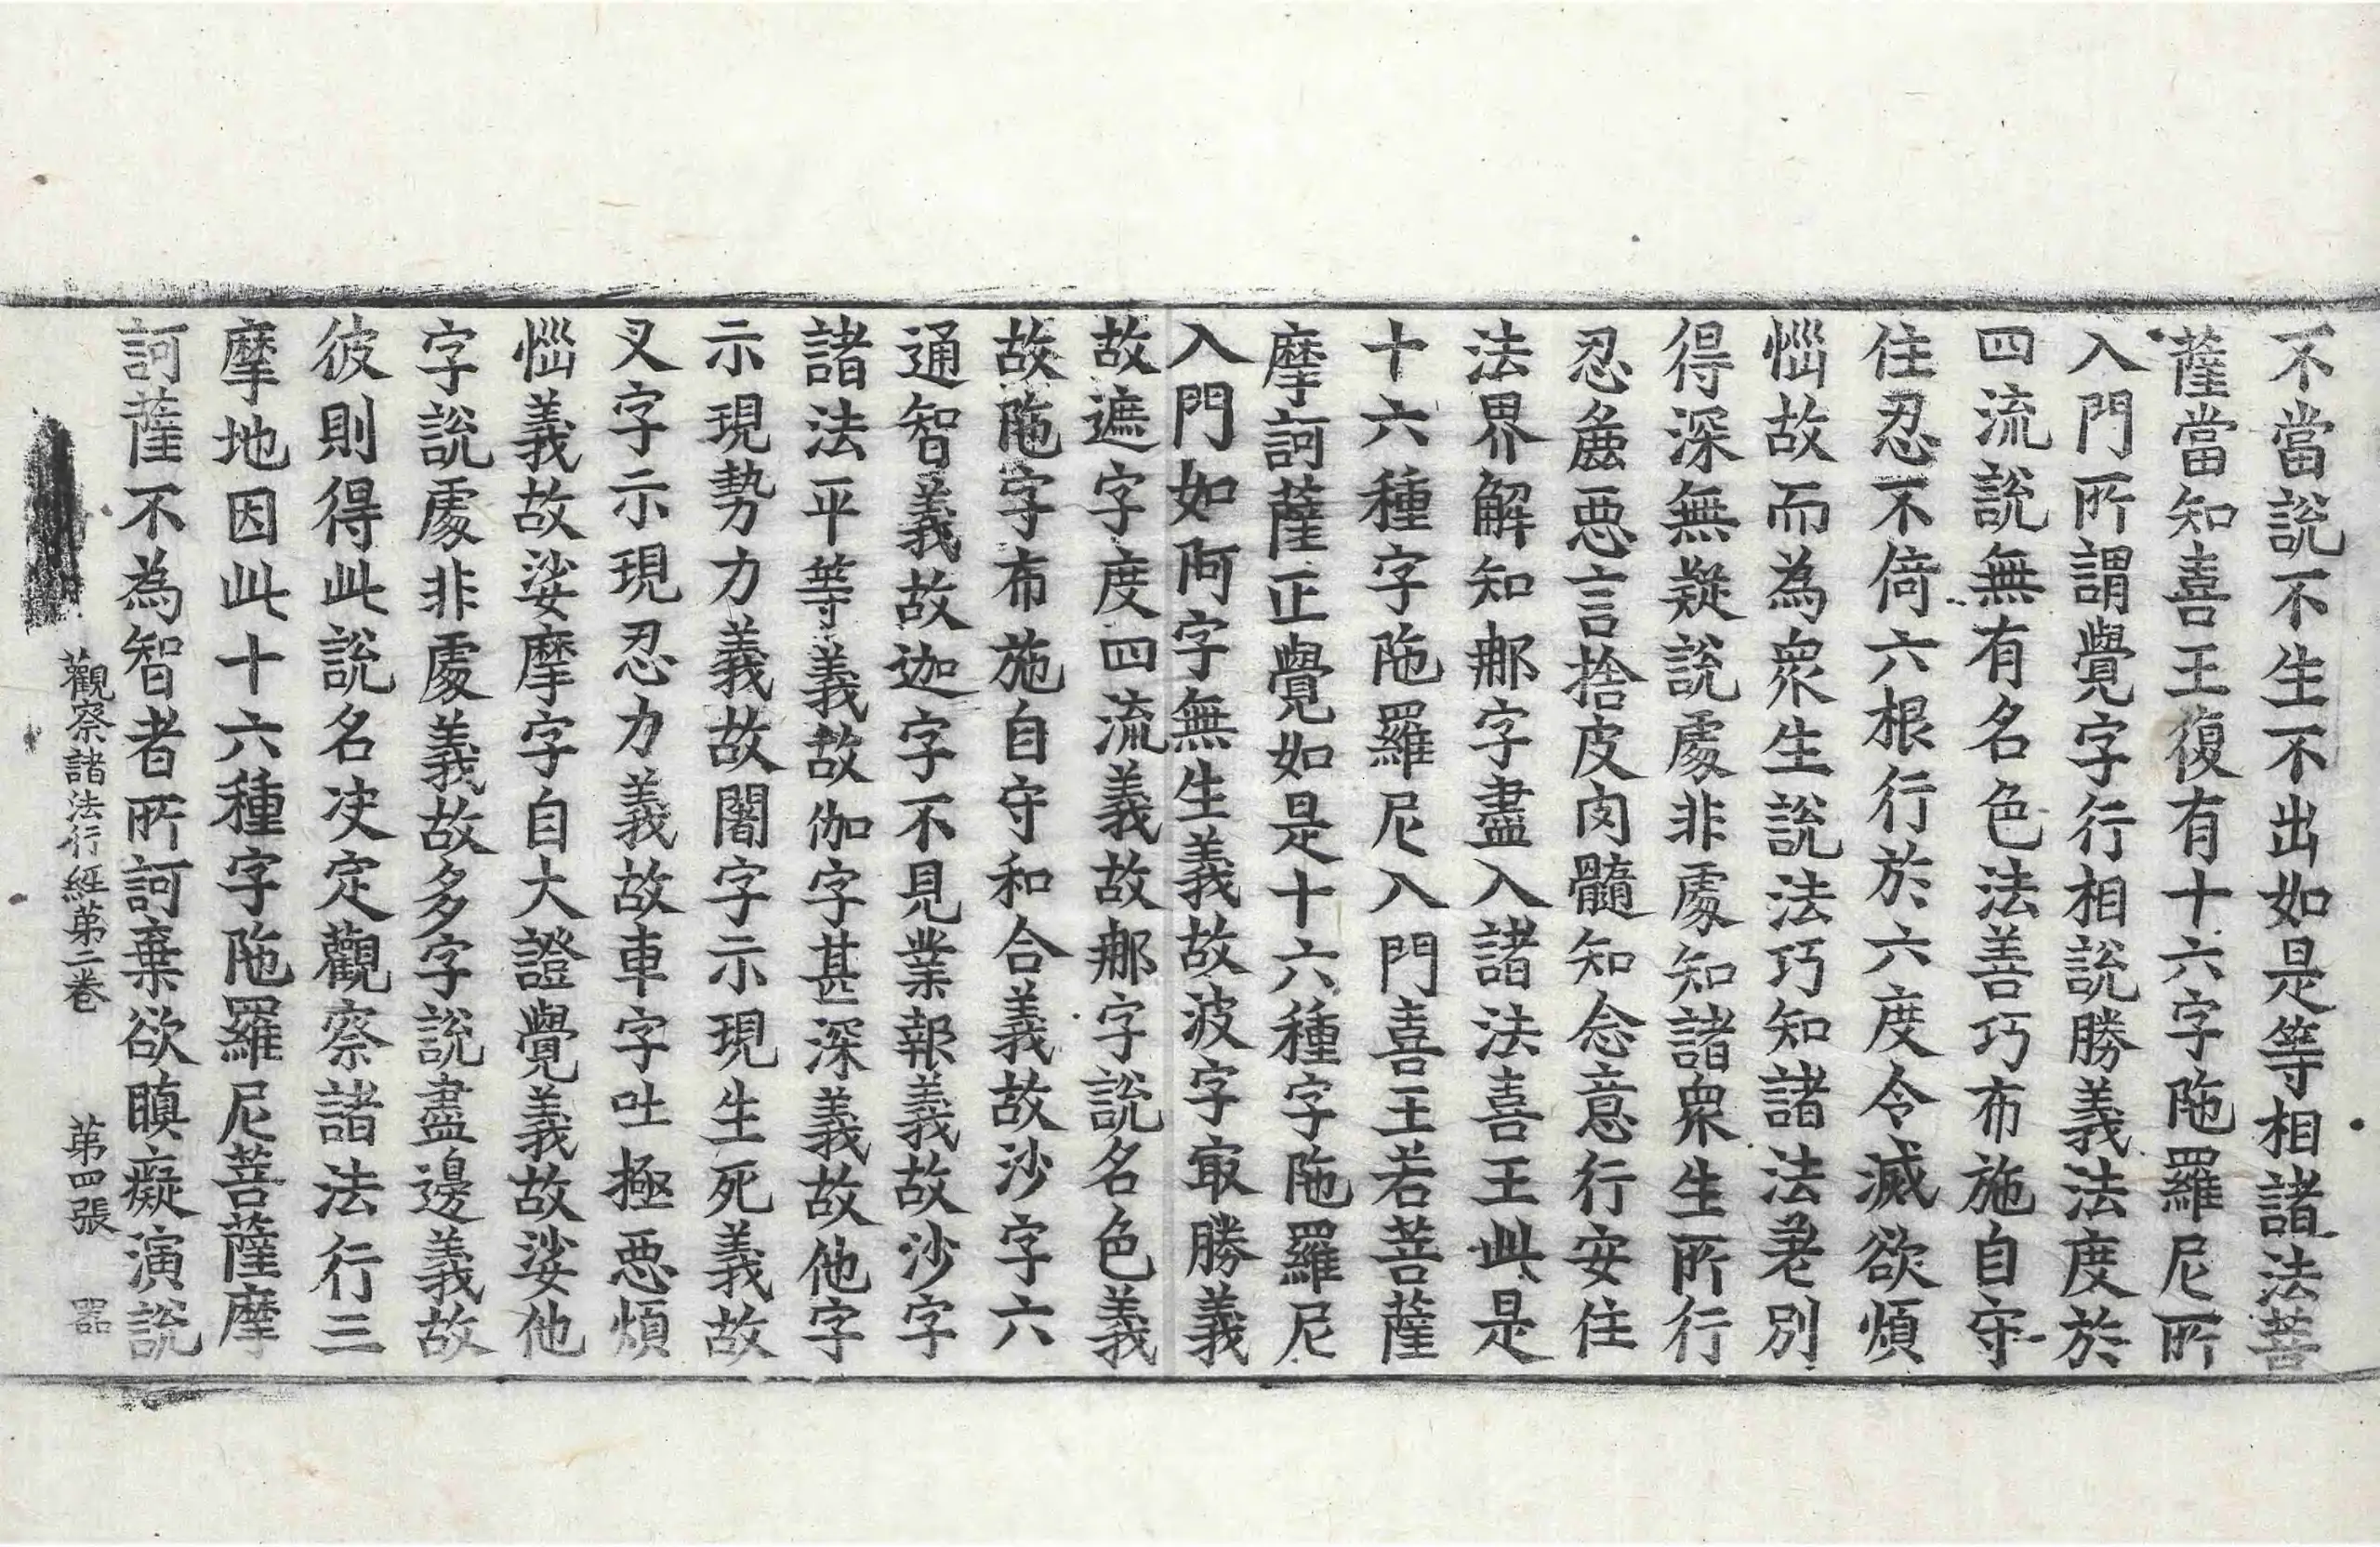 不當說不生不出如是等相諸法菩
薩當知喜王復有十六字陁羅尼所
入門所謂覺字行相說勝義法度於
四流說無有名色法善巧布施自守
住忍不倚六根行於六度令滅欲煩
惱故而為衆生說法巧知諸法差別
得深無疑說處非處知諸衆生所行
忍麁惡言捨皮肉髓知念意行安住
法界解知那字盡入諸法喜王此是
十六種字陁羅尼入門喜王若菩薩
摩訶薩正覺如是十六種字陁羅尼
入門如阿字無生義故波字㝡勝義
故遮字度四流義故那字說名色義
故陁字布施自守和合義故沙字六
通智義故迦字不見業報義故沙字
諸法平等義故伽字甚深義故他字
示現勢力義故闍字示現生死義故
叉字示現忍力義故車字吐極惡煩
惱義故娑摩字自大證覺義故娑他
字說處非處義故多字說盡邊義故
彼則得此說名决定觀察諸法行三
摩地因此十六種字陁羅尼菩薩摩
訶薩不為智者所訶棄欲瞋癡演說
觀察諸法行經第二卷 第四張 器